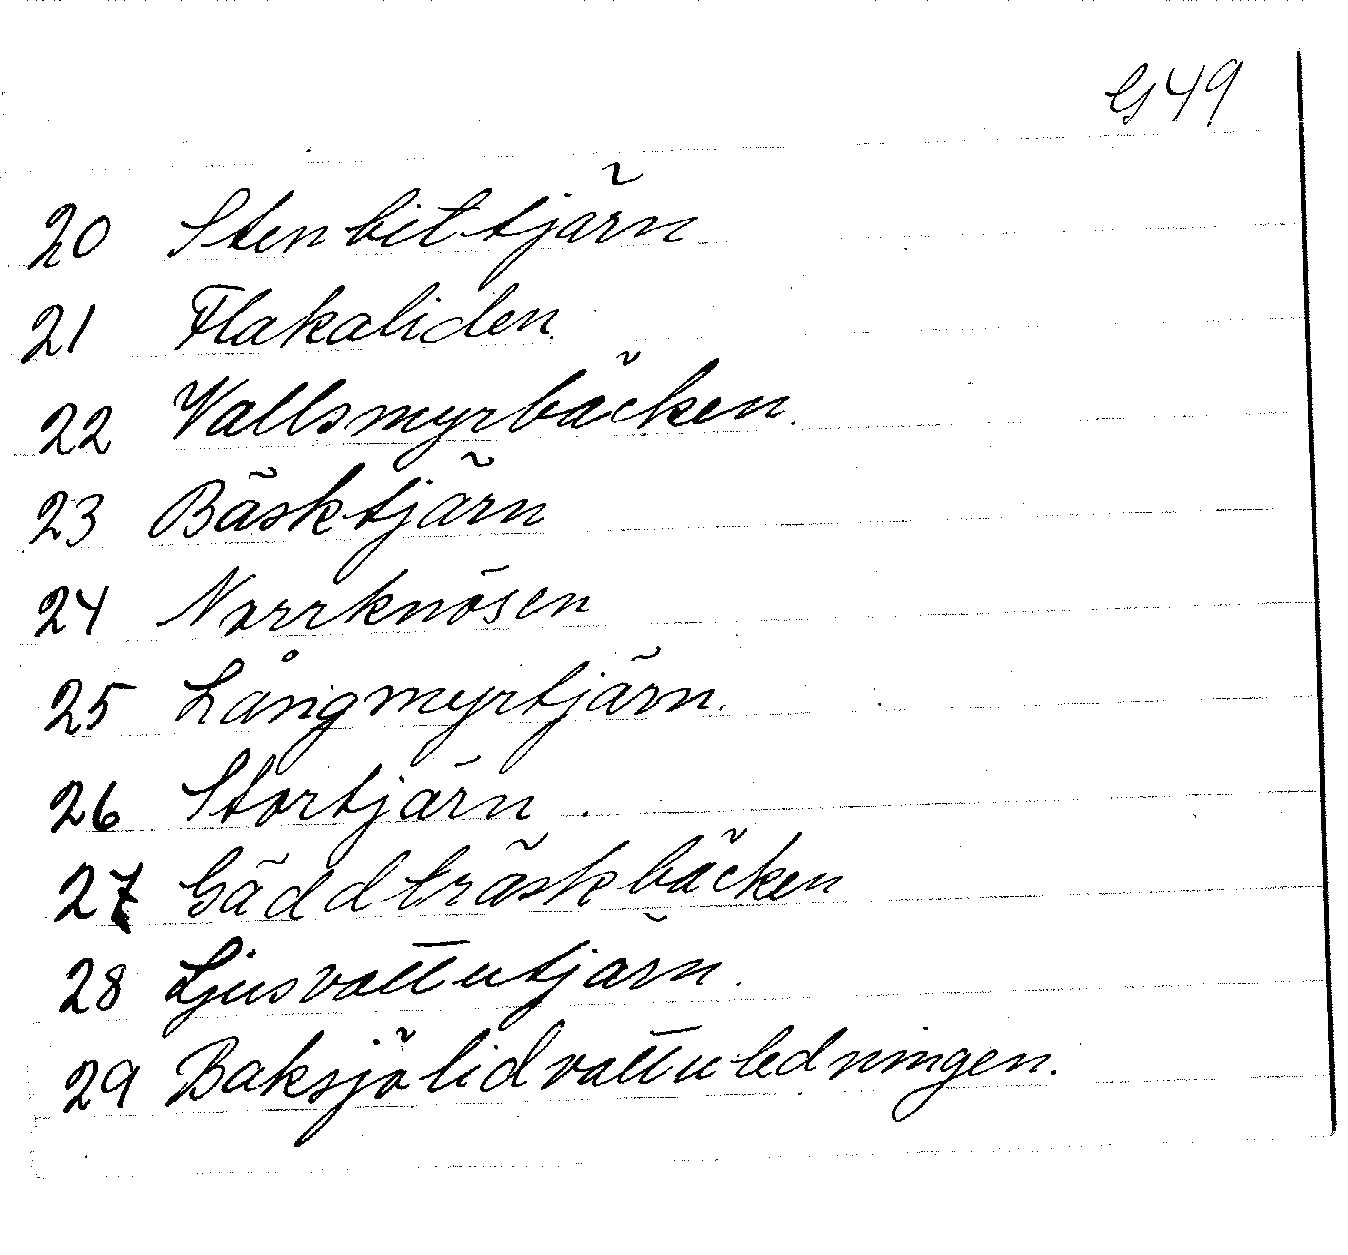 G49
20 Stenbittjärn
21 Flakaliden
22 Vallsmyrbäcken.
23 Bäsktjärn
24 Norrknösen
25 Långmyrtjärn.
26 Stortjärn
27 Gäddträskbäcken
28 Ljusvattutjärn.
29 Baksjölidvattuledningen.